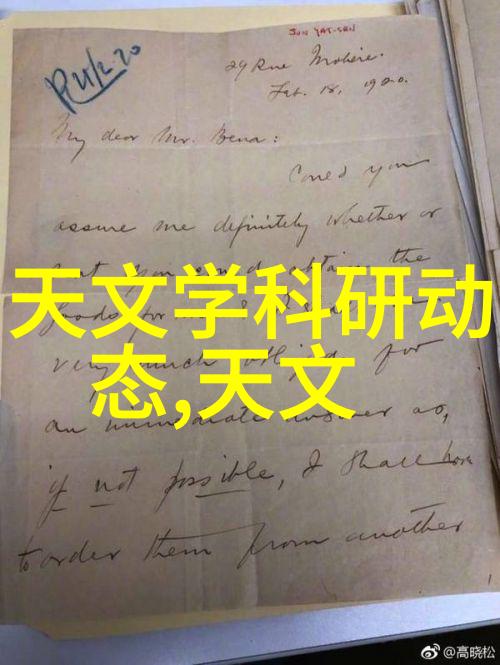 SUN YAT-SEN
R 21/2.20
29 Rue Molière.
Feb. 18, 1920.
My dear Mr. Bena:
Could you
assure me definitely whether or
not you could obtain the
goods for me
very much oblige for
an immediate answer as,
if not possible, I shall have
to order them from another
天文学科研动
态,天文
@高晓松